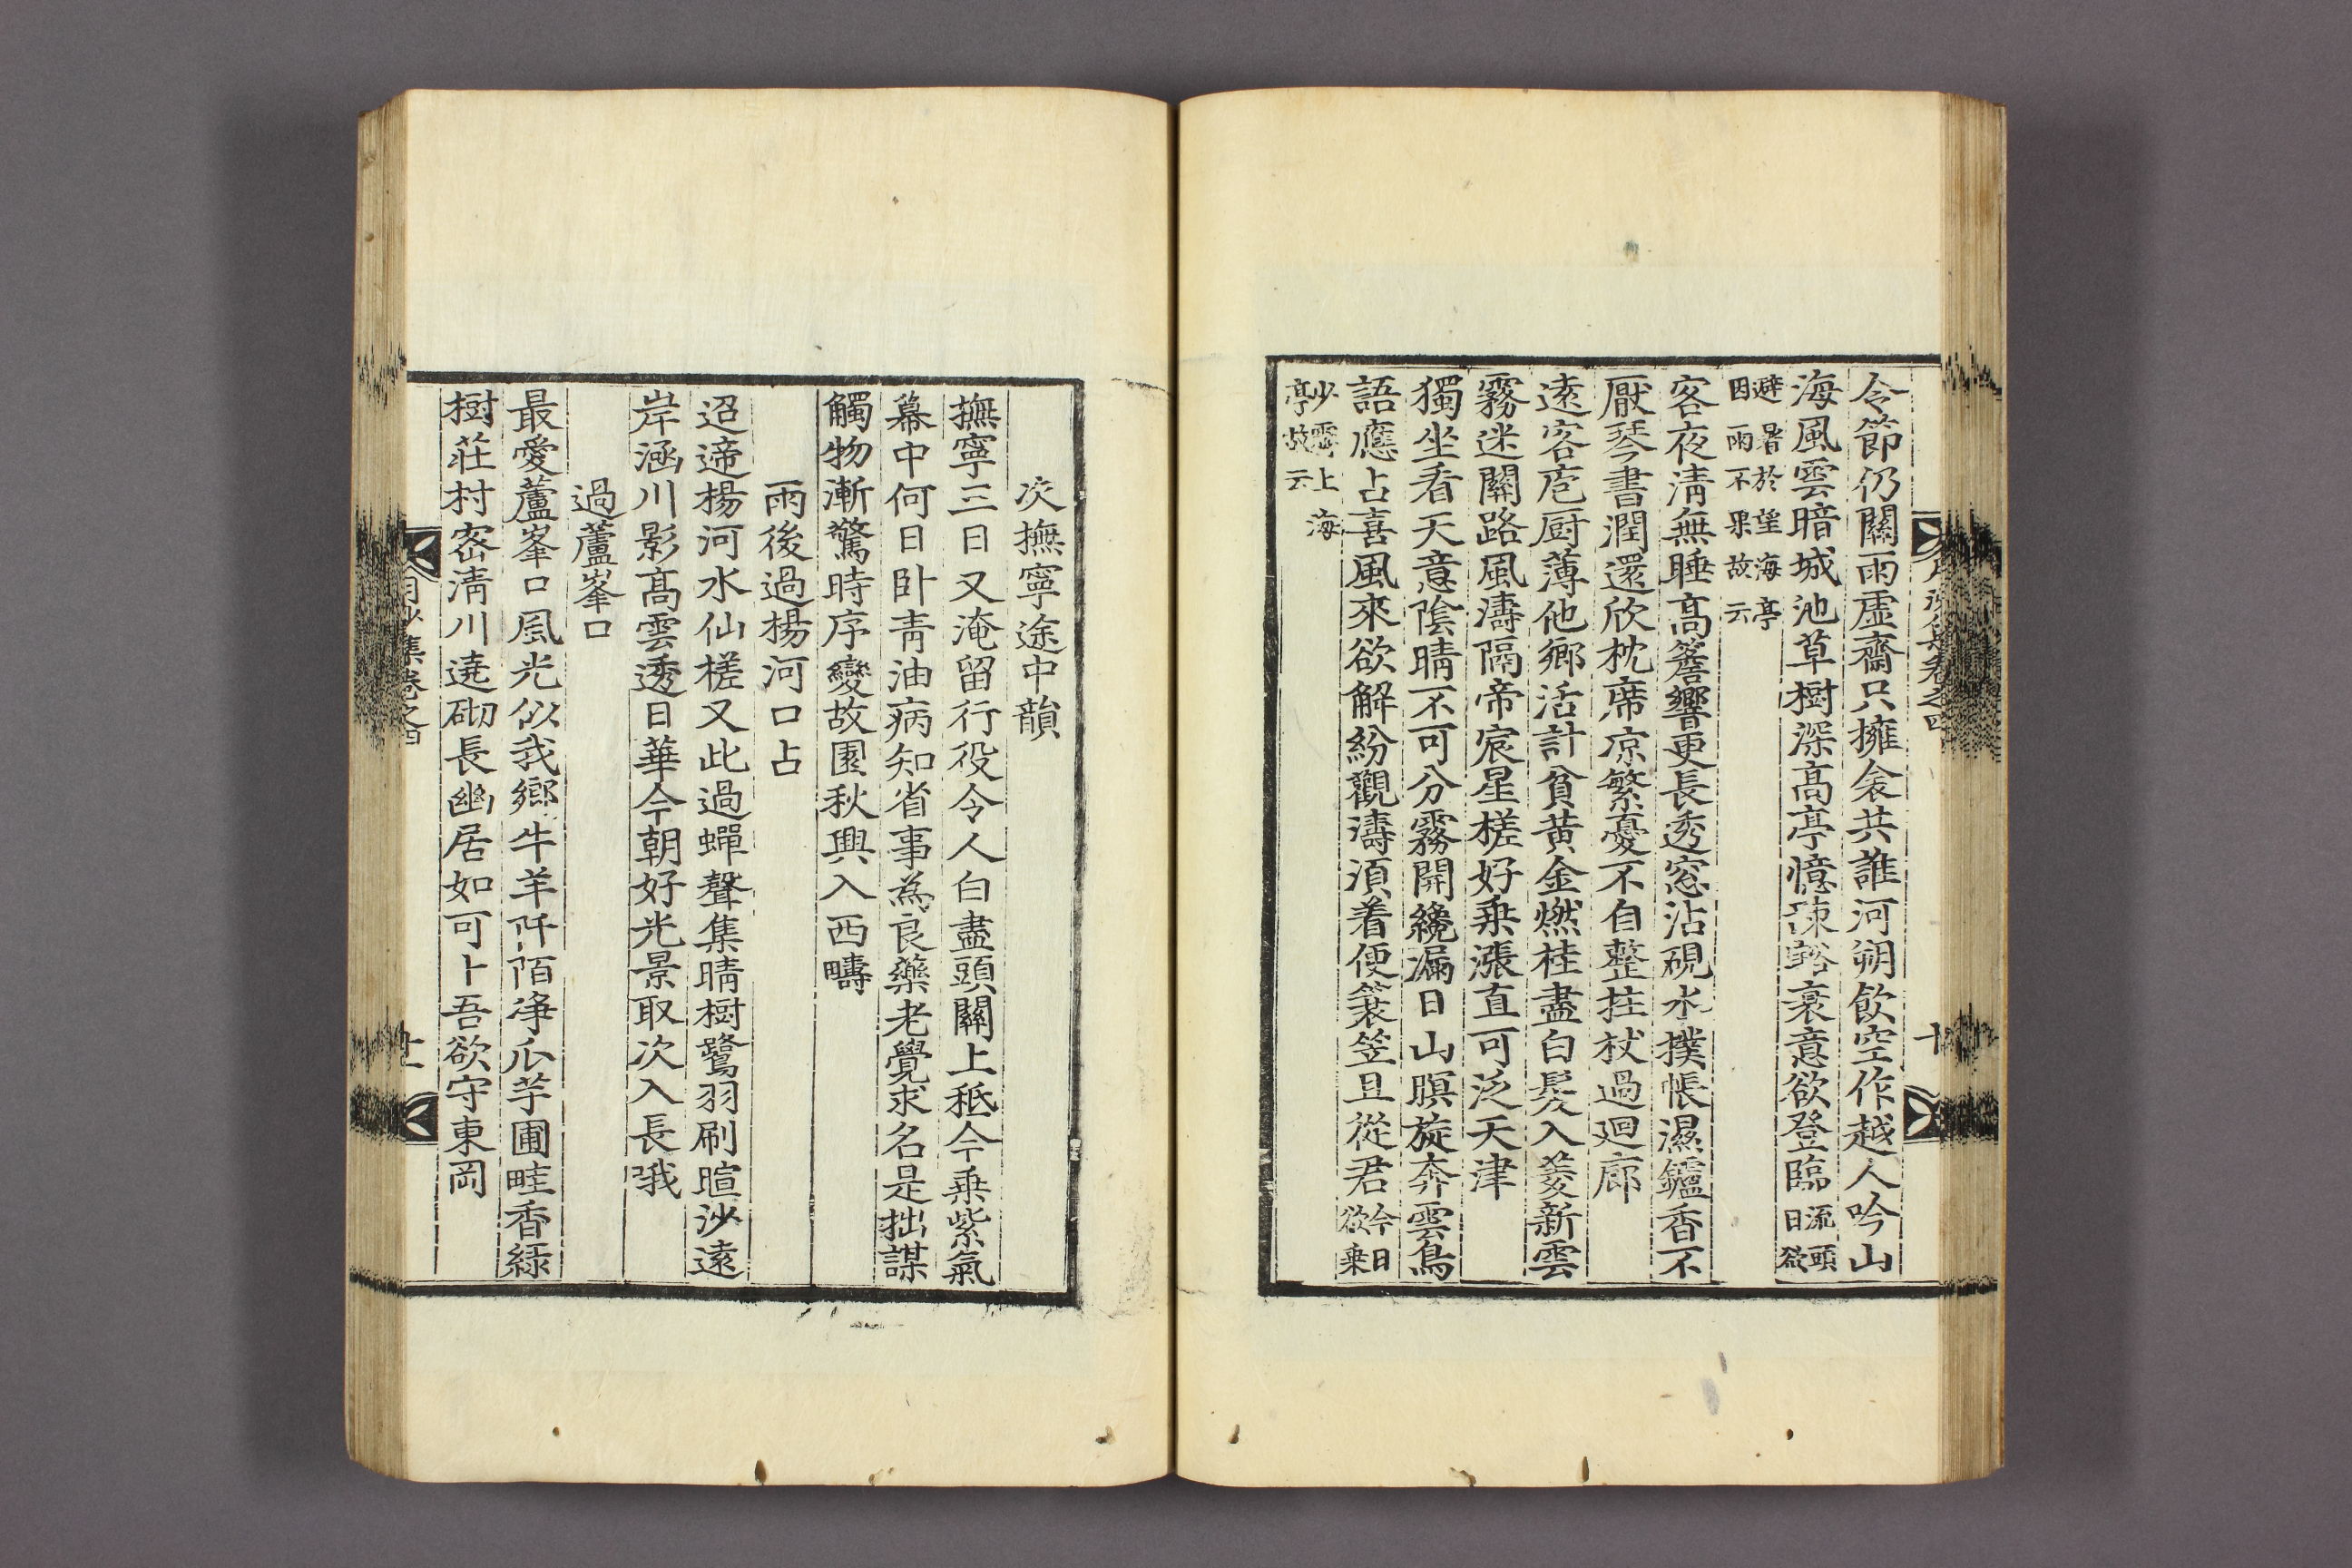 令節仍關雨虛齋只擁衾共誰河朔飮空作越人吟山
海風雲暗城池草樹深高亭憶谿衰意欲登臨流頭日欲
避暑於望海亭因雨不果故云
客夜淸無睡高簷響更長透窓沾硯水撲帳濕鑪香不
厭琴書潤還欣枕席凉繁憂不自整拄杖過廻廊
遠客庖厨薄他鄕活計貧黃金燃桂盡白髮入菱新雲
霧迷關路風濤隔帝宸星槎好乗漲直可泛天津
獨坐看天意陰晴不可分霧開纔漏日山暝旋奔雲鳥
語應占喜風來欲解紛觀濤須着便簑笠且從君今日欲乗
少霽上海亭故云
月沙集卷之四
十
次撫寧途中韻
撫寧三日又淹留行役令人白盡頭關上秪今乗紫氣
幕中何日卧靑油病知省事為良藥老覺求名是拙謀
觸物漸驚時序變故園秋興入西疇
雨後過楊河口占
迢遆楊河水仙槎又此過蟬聲集晴樹鷺羽刷暄沙遠
岸涵川影高雲透日華今朝好光景取次入長哦
過蘆峯口
最愛蘆峯口風光似我鄕牛羊阡陌淨瓜芋圃畦香綠
樹莊村密淸川遶砌長幽居如可卜吾欲守東岡
月沙集卷之四
十一